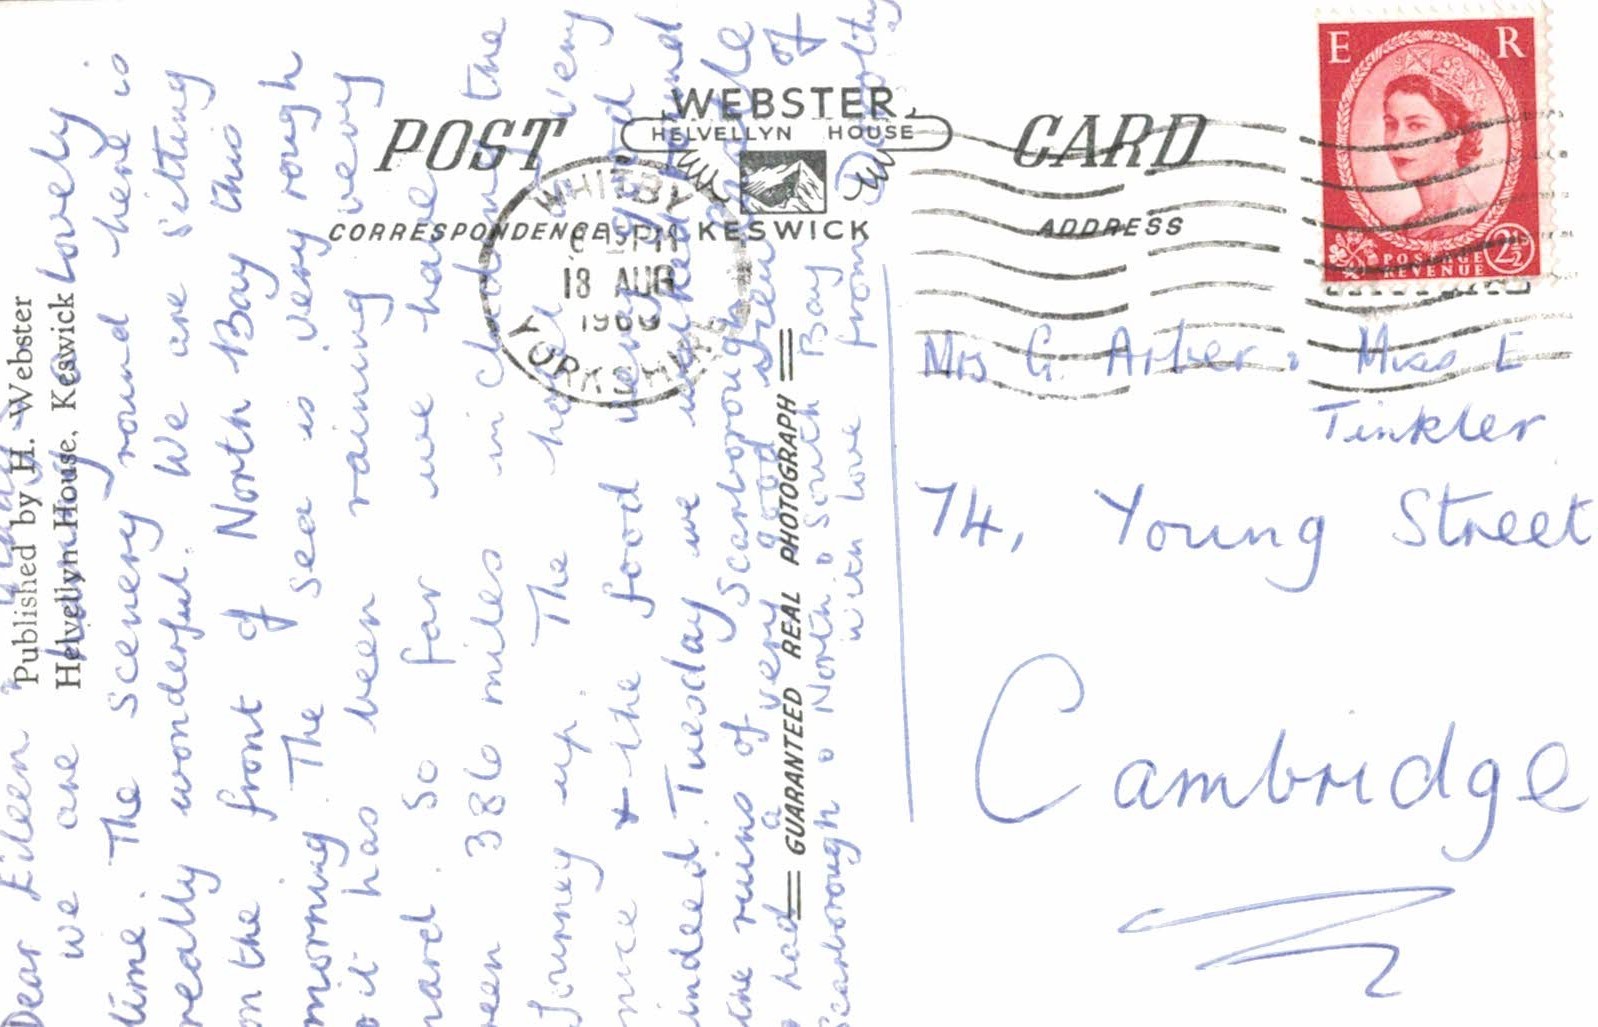 POST CARD
WEBSTER
HELVELLYN HOUSE
KESWICK
CORRESPONDENCE
ADDRESS
WHITBY
PM
18 AUG
1960
YORKSHIRE
E R
POSTAGE
REVENUE
2½
Published by H. Webster
Helvellyn House, Keswick
GUARANTEED REAL PHOTOGRAPH
Dear Eileen
We are having a lovely
time. The scenery round here is
really wonderful. We are sitting
on the front of North Bay this
morning. The sea is very rough
& it has been raining very
hard. So far we have
been 386 miles including the
Journey up. The hotel is very
nice & the food very good
indeed. Tuesday we walked round
the ruins of Scarborough Castle
& had a very good view of
Scarborough & North & South Bay
with love from Dorothy
Mrs G. Arber & Miss E
Tinkler
74, Young Street
Cambridge